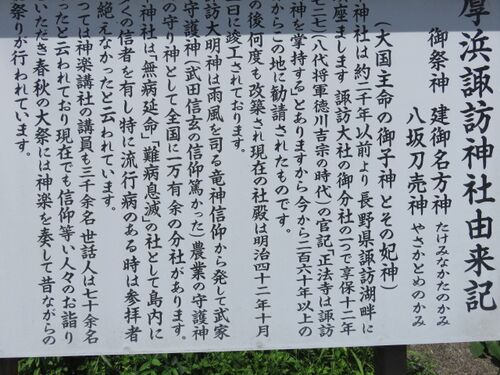 厚浜諏訪神社由来記
御祭神 建御名方神 たけみなかたのかみ
八坂刀売神 やさかとめのかみ
(大国主命の御子神とその妃神)
神社は約二千年以前より長野県諏訪湖畔に
座まします諏訪大社の御分社の一つで享保十二年
七二七(八代将軍徳川吉宗の時代)の官記「正法寺は諏訪
神を掌持する」とありますから今から二百六十年以上の
からこの地に勧請されたものです。
の後何度も改築され現在の社殿は明治四十二年十月
日に竣工されております。
訪大明神は雨風を司る竜神信仰から発して武家
守護神(武田信玄の信仰篤かった)農業の守護神
の守り神として全国に一万有余の分社があります。
神社は、無病延命「難病息滅」の社として島内に
くの信者を有し特に流行病のある時は参拝者
絶えなかったと云われています。
つては神楽講社の講員も三千余名世話人は七十余名
ったと云われており現在でも信仰等い人々のお詣り
いただき春秋の大祭には神楽を奏して昔ながらの
祭りが行われています。